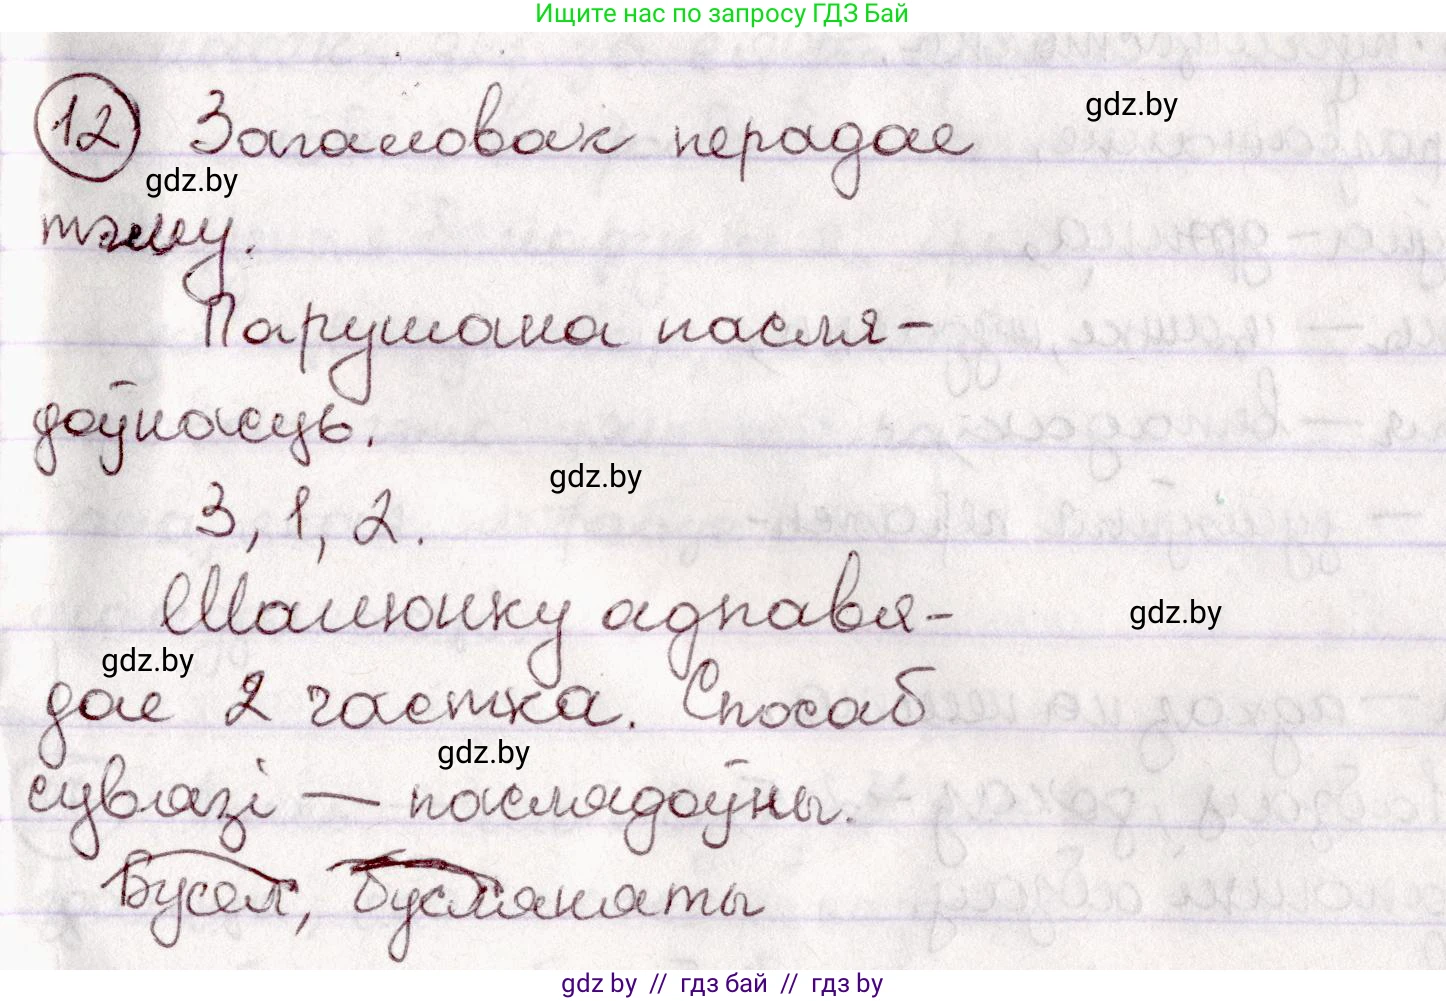 Ищите нас по запросу ГДЗ Бай
12 Загаловак перадае
gdz.by
gdz.by
тэму.
Парушана пасля-
доўнасць.
gdz.by
3, 1, 2.
Малюнку адпавя-
gdz.by
gdz.by
дае 2 частка. Спосаб
gdz.by
сувязі — паслядоўны.
Бусел, бусляняты
gdz.by // гдз бай // гдз by